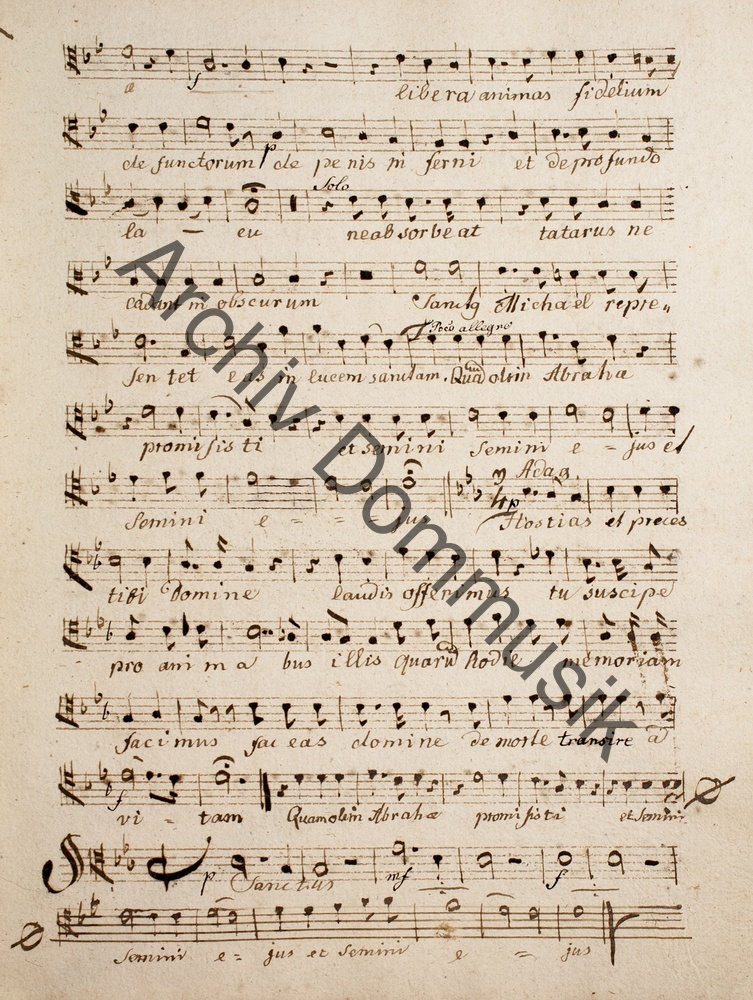 libera animas fidelium
de functorum p de penis in ferni et de profundo
Solo
la - cu neabsorbeat tatarus ne
cadant in obscurum Sanctg Michael repre=
Poco allegro
sen tet eas in lucem sanctam. Quā olim Abrahæ
promisisti et semini Semini e = jus et
Adag
Semini e = = = jus p Hostias et preces
tibi Domine laudis offerimus tu suscipe
pro anima bus illis quarū hodie memoriam
facimus fac eas domine de morte transire a
f
vi - tam Quam olim Abrahæ promisisti et semini
p Sanctus mf f
semini e = jus et Semini e = jus
Archiv Dommusik